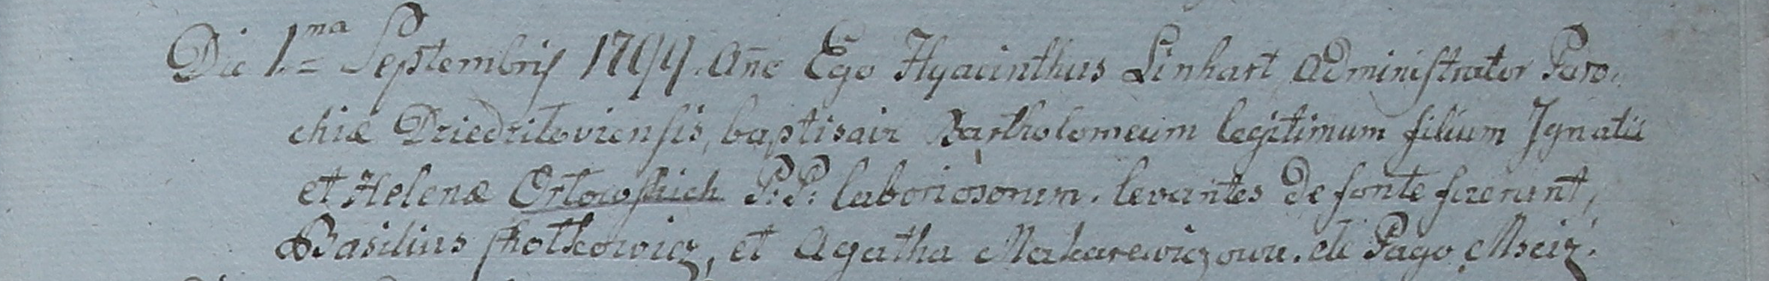 Die 1.ma Septembris 1799. Anõ Ego Hyacinthus Linhart Administrator Paro-
chiæ Dziedziloviensis, baptisavi Bartholomeum legitimum filium Ignatii
et Helenæ Orłowskich P: P: laboriosorum. levantes de fonte fuerunt,
Basilius et Agatha Makarewiczowa. de Pago Msciz.